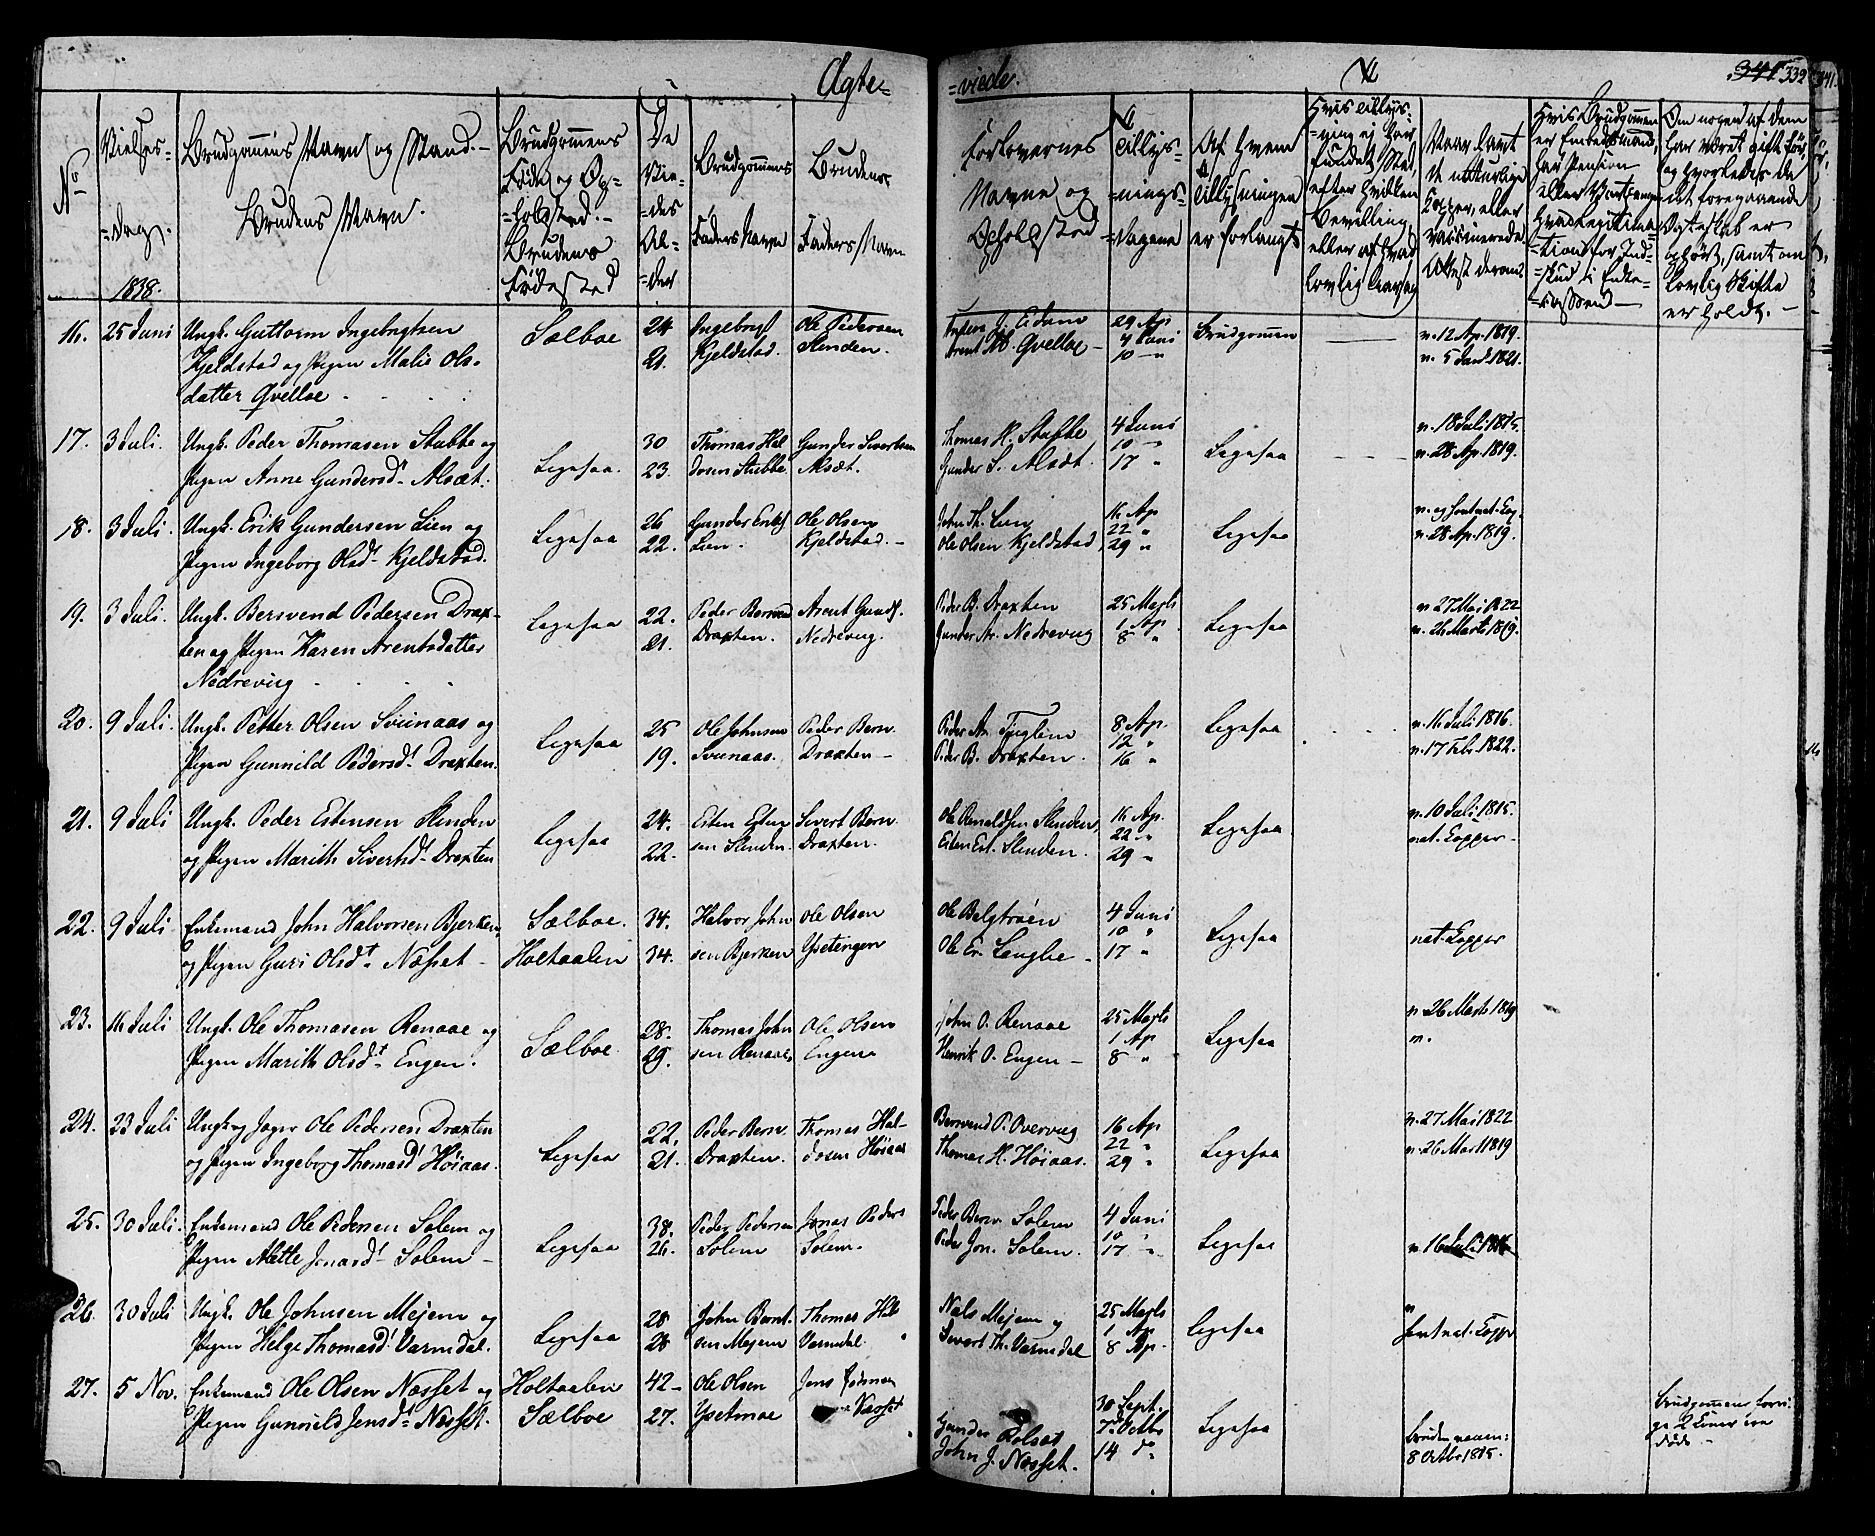 Ægte=
=viede.
341 332
No
Vielses=
=Dag.
1838.
Brudgommens Navn og Stand.
Brudens Navn.
Brudgommens
Føde og Op=
=holdsted.
Brudens
Fødested
De
Vie=
=des
Al=
=der
Brudgommens
Faders Navn
Brudens
Faders Navn
Forlovernes
Navne og
Opholdsted
Tillys=
=nings=
=Dagene
Af Hvem
Tillysningen
er forlangt
Hvis Tillys=
=ning ej har
fundet Sted,
efter hvilken
Bevilling
eller af hvad
lovlig Aarsag
Naar havt
de naturlige
Kopper, eller
vaccinerede
Attest derom
Hvis Brudgommen
er Embedsmand,
har Pension
eller Vartpenge
hvad Legitima=
=tion for Ind=
=skud i Enke=
=kassen
Om nogen af dem
har været gift før,
og hvorledes da
det foregaaende
Ægteskab er
ophørt, samt om
lovlig Skifte
er holdt.
16. 25 Juni Ungk. Guttorm Ingebrigtsen
Kjeldstad og Pigen Malie Ols=
datter Qvelloe
Sælboe
24
21.
Ingebrigt
Kjeldstad.
Ole Pedersen
Slenden.
J. Eidam
Arent Qvelloe
29 Ap
4 Juni
10 "
Brudgommen
v. 12 Ap. 1819.
v. 5 Jan. 1821.
17. 3 Juli. Ungk. Peder Thomasen Stubbe og
Pigen Anne Gundersd. Alsæt.
Ligesaa.
30
23.
Thomas Hal
dosen Stubbe
Gunder Sivertsen
Alsæt.
Thomas H. Stubbe
Gunder S. Alsæt.
4 Juni
10 "
17 "
Ligesaa
v. 18 Juli 1815.
v. 28 Ap. 1819.
18. 3 Juli. Ungk. Erik Gundersen Lien og
Pigen Ingeborg Olsd. Kjeldstad.
Ligesaa
26
22.
Gunder Eriks
Lien
Ole Olsen
Kjeldstad.
John Th. Lien
Ole Olsen Kjeldstad
16 Ap
22 "
29 "
Ligesaa
v. og havt nat. Kop.
v. 28 Ap. 1819.
19. 3 Juli. Ungk. Bersvend Pedersen Drax=
ten og Pigen Karen Arentsdatter
Nedrevug
Ligesaa
22.
21.
Peder Bersvend
Draxten.
Arent Gunds.
Nedrevug.
Peder B. Draxten
Gunder Ar. Nedrevug
25 Marts
1 Ap.
8 "
Ligesaa
v. 27 Mai 1822
v. 26 Marts 1819.
20. 9 Juli. Ungk. Petter Olsen Sviinaas og
Pigen Gunnild Pedersd. Draxten.
Ligesaa
25
19.
Ole Johnsen
Sviinaas.
Peder Bersv.
Draxten
Peder Ar. Fuglem
Peder B. Draxten.
8 Ap.
12 "
16 "
Ligesaa
v. 16 Juli 1816.
v. 17 Febr. 1822.
21. 9 Juli Ungk. Peder Estensen Slinden
og Pigen Marith Sivertsd. Draxten
Ligesaa
24.
22.
Esten Esten
sen Slenden.
Sivert Bersv.
Draxten.
Ole Arnoldsen Slinden,
Esten Est. Slinden.
16 Ap.
22 "
29 "
Ligesaa
v. 10 Juli 1815.
nat. Kopper
22. 9 Juli Enkemand John Halvorsen Bjerken,
og Pigen Guri Olsd. Næsset
Sælboe.
Holtaalen
34.
34.
Halvor John
sen Bjerken
Ole Olsen
Ysetengen
Ole Belgtrøen
Ole Er. Langlie
4 Juni
10 "
17 "
Ligesaa
nat. Kopper
23. 16 Juli Ungk. Ole Thomasen Renaae og
Pigen Marith Olsd. Engen.
Sælboe
28.
29.
Thomas John
sen Renaae
Ole Olsen
Engen
John O. Renaae
Henrik O. Engen
25 Marts
1 Ap
8 "
Ligesaa
v. 26 Marts 1819
v.
24. 23 Juli Ungk. og Jæger Ole Pedersen Draxten
og Pigen Ingeborg Thomasd. Høiaas.
Ligesaa
22.
21.
Peder Bersv.
Draxten.
Thomas Hal=
dosen Høiaas
Bersvend P. Overvug
Thomas H. Høiaas.
16 Ap
22 "
29 "
Ligesaa
v. 27 Mai 1822
v. 26 Marts 1819
25. 30 Juli. Enkemand Ole Pedersen Solem og
Pigen Mette Jonasd. Solem
Ligesaa
38.
26.
Peder Pedersen
Solem
Jonas Peders
Solem.
Peder Bersv. Solem
Peder Jon. Solem.
4 Juni
10 "
17 "
Ligesaa
v. 16 Juli 1816
26. 30 Juli Ungk. Ole Johnsen Mejem og
Pigen Helge Thomasd. Varmdal.
Ligesaa
28
28
John Bernt
sen Mejem
Thomas Hals
Varmdal.
Nils Mejem og
Sivert Th. Varmdal
25 Marts
1 Ap.
8 Ap.
Ligesaa
"
havt nat. Kopp
27. 5 Nov. Enkemand Ole Olsen Næsset og
Pigen Gunnild Jensd. Næsset.
Holtaalen
Sælboe
42
27.
Ole Olsen
Ysetmoe
Jens Johnsen
Næsset
Gunder Rolset
John J. Næsset.
30 Sept.
7. Octbr
14 do
Ligesaa
Bruden vaccin:
8 Octbr 1815.
Brudgommens forri
ge 2 Koner ere
døde